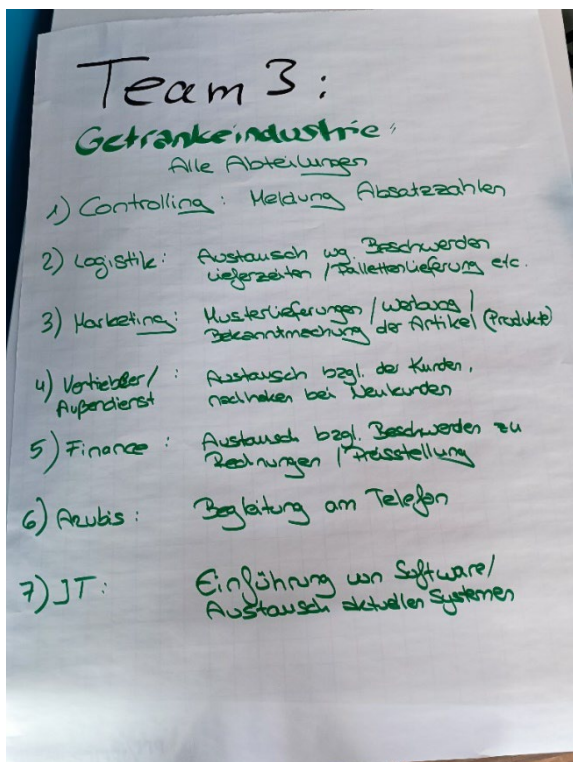 Team 3:
Getränkeindustrie:
Alle Abteilungen
1) Controlling: Meldung Absatzzahlen
2) Logistik: Austausch wg. Beschwerden
Lieferzeiten / Pallettenlieferung etc.
3) Marketing: Musterlieferungen / Werbung /
Bekanntmachung der Artikel (Produkte)
4) Vertriebler / : Austausch bzgl. der Kunden,
Außendienst nachhaken bei Neukunden
5) Finance: Austausch bzgl. Beschwerden zu
Rechnungen / Preisstellung
6) Azubis: Begleitung am Telefon
7) IT: Einführung von Software/
Austausch aktuellen Systemen